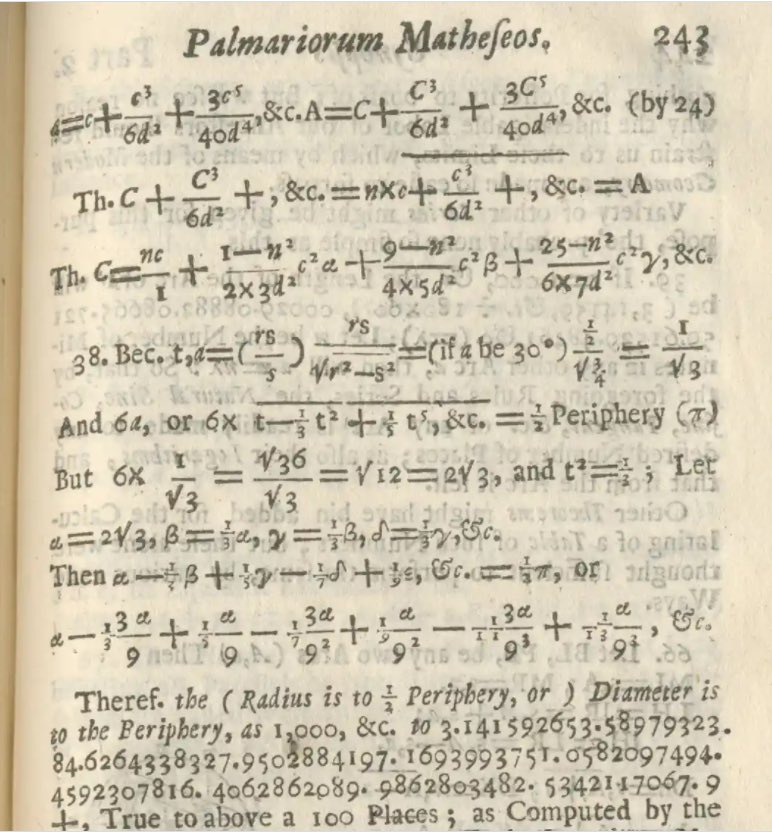 Palmariorum Matheſeos. 243
a=c+c³/6d²+3c⁵/40d⁴,&c.A=C+C³/6d²+3C⁵/40d⁴,&c. (by 24)
Th. C+C³/6d²+, &c.=n×c+c³/6d²+, &c.=A
Th. C=nc/1+1−n²/2×3d² c²α+9−n²/4×5d² c²β+25−n²/6×7d² c²γ,&c.
38. Bec. t,a=(rs/s) rs/√r²−s²=(if a be 30°) ½/√¾=1/√3
And 6a, or 6× t−⅓t²+⅕t⁵,&c.=½Periphery (π)
But 6×1/√3=√36/√3=√12=2√3, and t²=⅓; Let
α=2√3, β=⅓α, γ=⅓β, δ=⅓γ,&c.
Then α−⅓β+⅕γ−1/7δ+1/9ε, &c.=½π, or
α−⅓3α/9+⅕α/9−1/7 3α/9²+1/9 α/9²−1/11 3α/9³+1/13 α/9³, &c.
Theref. the (Radius is to ½ Periphery, or) Diameter is
to the Periphery, as 1,000, &c. to 3.141592653.58979323.
84.6264338327.9502884197.1693993751.0582097494.
4592307816.4062862089.9862803482.5342117067.9
+, True to above a 100 Places; as Computed by the